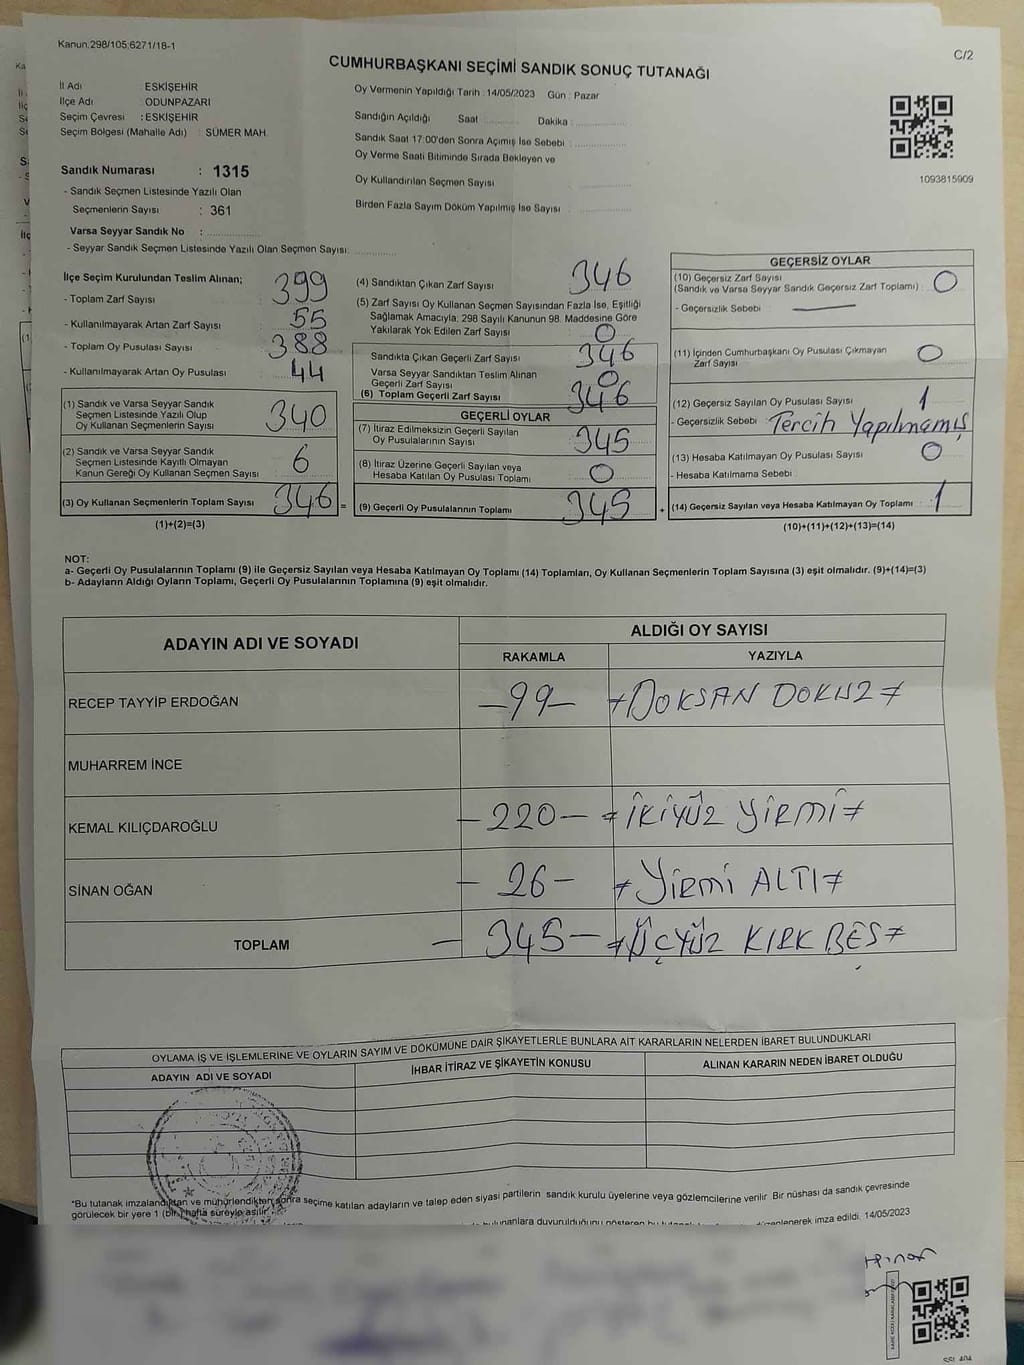 Kanun:298/105;6271/18-1
C/2
CUMHURBAŞKANI SEÇİMİ SANDIK SONUÇ TUTANAĞI
İl Adı : ESKİŞEHİR
İlçe Adı : ODUNPAZARI
Seçim Çevresi : ESKİŞEHİR
Seçim Bölgesi (Mahalle Adı) : SÜMER MAH.
Oy Vermenin Yapıldığı Tarih : 14/05/2023 Gün : Pazar
Sandığın Açıldığı Saat : Dakika :
Sandık Saat 17:00'den Sonra Açımış İse Sebebi :
Oy Verme Saati Bitiminde Sırada Bekleyen ve
Oy Kullandırılan Seçmen Sayısı :
Birden Fazla Sayım Döküm Yapılmış İse Sayısı :
1093815909
Sandık Numarası : 1315
- Sandık Seçmen Listesinde Yazılı Olan
Seçmenlerin Sayısı : 361
Varsa Seyyar Sandık No :
- Seyyar Sandık Seçmen Listesinde Yazılı Olan Seçmen Sayısı:
İlçe Seçim Kurulundan Teslim Alınan;
- Toplam Zarf Sayısı : 399
- Kullanılmayarak Artan Zarf Sayısı : 55
- Toplam Oy Pusulası Sayısı : 388
- Kullanılmayarak Artan Oy Pusulası : 44
(1) Sandık ve Varsa Seyyar Sandık
Seçmen Listesinde Yazılı Olup
Oy Kullanan Seçmenlerin Sayısı : 340
(2) Sandık ve Varsa Seyyar Sandık
Seçmen Listesinde Kayıtlı Olmayan
Kanun Gereği Oy Kullanan Seçmen Sayısı : 6
(3) Oy Kullanan Seçmenlerin Toplam Sayısı : 346 =
(1)+(2)=(3)
(4) Sandıktan Çıkan Zarf Sayısı : 346
(5) Zarf Sayısı Oy Kullanan Seçmen Sayısından Fazla İse, Eşitliği
Sağlamak Amacıyla; 298 Sayılı Kanunun 98. Maddesine Göre
Yakılarak Yok Edilen Zarf Sayısı : 0
Sandıkta Çıkan Geçerli Zarf Sayısı : 346
Varsa Seyyar Sandıktan Teslim Alınan
Geçerli Zarf Sayısı : 0
(6) Toplam Geçerli Zarf Sayısı : 346
GEÇERLİ OYLAR
(7) İtiraz Edilmeksizin Geçerli Sayılan
Oy Pusulalarının Sayısı : 345
(8) İtiraz Üzerine Geçerli Sayılan veya
Hesaba Katılan Oy Pusulası Toplamı : 0
(9) Geçerli Oy Pusulalarının Toplamı : 345 +
GEÇERSİZ OYLAR
(10) Geçersiz Zarf Sayısı
(Sandık ve Varsa Seyyar Sandık Geçersiz Zarf Toplamı) : 0
- Geçersizlik Sebebi :
(11) İçinden Cumhurbaşkanı Oy Pusulası Çıkmayan
Zarf Sayısı : 0
(12) Geçersiz Sayılan Oy Pusulası Sayısı : 1
- Geçersizlik Sebebi : Tercih Yapılmamış
(13) Hesaba Katılmayan Oy Pusulası Sayısı : 0
- Hesaba Katılmama Sebebi :
(14) Geçersiz Sayılan veya Hesaba Katılmayan Oy Toplamı : 1
(10)+(11)+(12)+(13)=(14)
NOT:
a- Geçerli Oy Pusulalarının Toplamı (9) ile Geçersiz Sayılan veya Hesaba Katılmayan Oy Toplamı (14) Toplamları, Oy Kullanan Seçmenlerin Toplam Sayısına (3) eşit olmalıdır. (9)+(14)=(3)
b- Adayların Aldığı Oyların Toplamı, Geçerli Oy Pusulalarının Toplamına (9) eşit olmalıdır.
ADAYIN ADI VE SOYADI
ALDIĞI OY SAYISI
RAKAMLA YAZIYLA
RECEP TAYYİP ERDOĞAN -99- DOKSAN DOKUZ
MUHARREM İNCE
KEMAL KILIÇDAROĞLU -220- İKİYÜZ YİRMİ
SİNAN OĞAN -26- YİRMİ ALTI
TOPLAM -345- ÜÇYÜZ KIRK BEŞ
OYLAMA İŞ VE İŞLEMLERİNE VE OYLARIN SAYIM VE DÖKÜMÜNE DAİR ŞİKAYETLERLE BUNLARA AİT KARARLARIN NELERDEN İBARET BULUNDUKLARI
ADAYIN ADI VE SOYADI İHBAR İTİRAZ VE ŞİKAYETİN KONUSU ALINAN KARARIN NEDEN İBARET OLDUĞU
*Bu tutanak imzalandıktan ve mühürlendikten sonra seçime katılan adayların ve talep eden siyasi partilerin sandık kurulu üyelerine veya gözlemcilerine verilir. Bir nüshası da sandık çevresinde
görülecek bir yere 1 (bir) hafta süreyle asılır.
bulunanlara duyurulduğunu gösteren bu düzenlenerek imza edildi. 14/05/2023